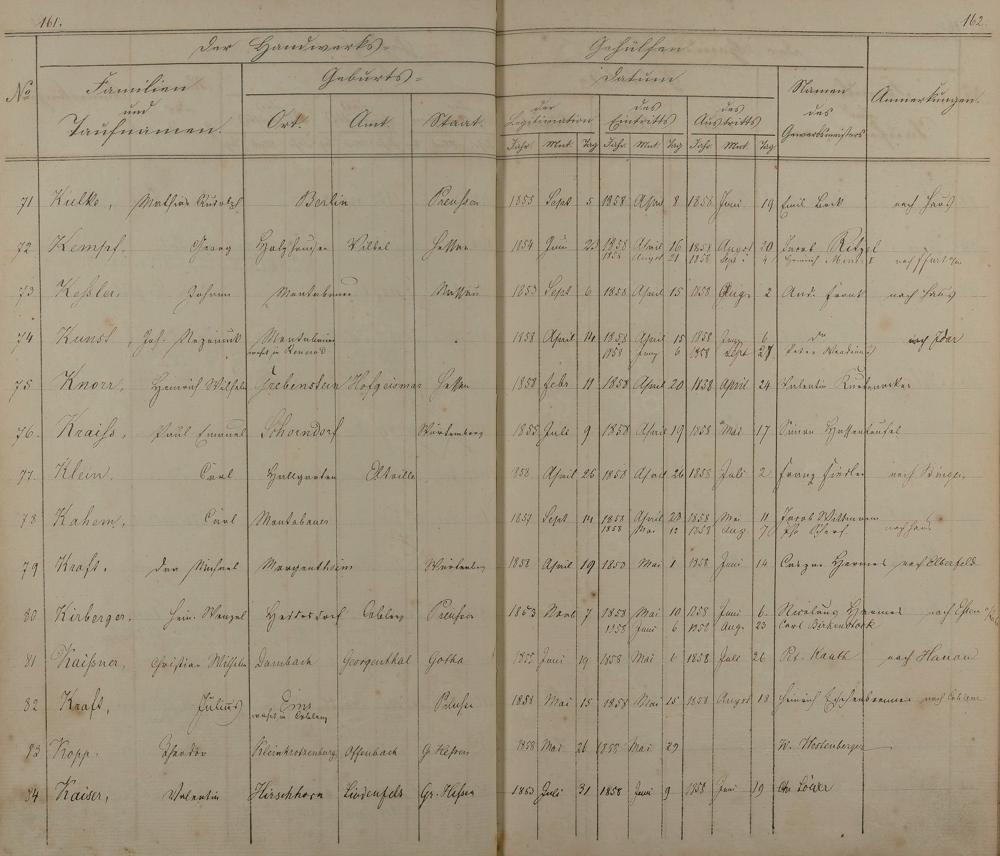 161.
162.
Der Handwerks-
Gehülfen
No
Familien
und
Taufnamen.
Geburts-
Ort.
Amt.
Staat.
Datum
der
Legitimation
des
Eintritts
des
Austritts
Jahr Mnt. Tag Jahr Mnt. Tag Jahr Mnt. Tag
Namen
des
Gewerbsmeisters
Anmerkungen.
71 Mathias Rudolph Berlin Preussen 1855 Sept 5 1858 April 8 1858 Juni 19 Emil Beck nach Haus
72 Kempf, Georg Holzhausen Vilbel Hessen 1854 Juni 23 1858 April 16 1858 August 20 Jacob Ritzel
1858 August 21 1858 Sept 4 Heinrich
73 Keßler, Johann Montabaur Nassau 1853 Sept 6 1858 April 15 1858 Aug. 2 And. Frank nach Haus
74 Kunst, Joh. Montabaur 1858 April 14 1858 April 15 1858 Juny 6 do nach Idar
wohnt in 1858 Juny 6 1858 Sept 27 Peter
75 Knorr, Heinrich Wilhelm Grebenstein Hofgeismar Hessen 1858 Febr 11 1858 April 20 1858 April 24 Valentin
76. Kraiss, Paul Emanuel Schorndorf Würtemberg 1855 Juli 9 1858 April 19 1858 Mai 17 Simon
77. Klein, Carl Hallgarten Eltville 1858 April 26 1858 April 26 1858 Juli 2 Franz nach Bingen
78 Kahem, Carl Montabaur 1857 Sept 14 1858 April 23 1858 Mai 11 Jacob Wittmann
1858 Mai 12 1858 Aug. nach Haus
79 Kraft, Michael Mergentheim Würtembg 1858 April 19 1858 Mai 1 1858 Juni 14 Caspar Hermes nach Elberfeld
80 Kirberger, Hein. Wenzel Heddesdorf Coblenz Preussen 1853 Novb 7 1858 Mai 10 1858 Juni 6. Nicolaus Hermes nach
1858 Juni 6 1858 Aug. 23 Carl Birkenstock
81 Kaißner, Christian Wilhelm Dambach Georgenthal Gotha 1855 Juni 19 1858 Mai 6 1858 Juli 26 Pet. Kauth nach Hanau
82 Kraft, Julius Ems Preussen 1858 Mai 15 1858 Mai 15 1858 August 18 Heinrich Eschenbrenner nach Coblenz
wohnt in Coblenz
83 Kopp. Theodor Kleinkrotzenburg Offenbach G. Hessen 1858 Mai 26 1858 Mai 29 W. Westenberger
84 Kaiser, Valentin Hirschhorn Lindenfels Gr. Hessen 1853 Juli 31 1858 Juni 9 1858 Juni 19